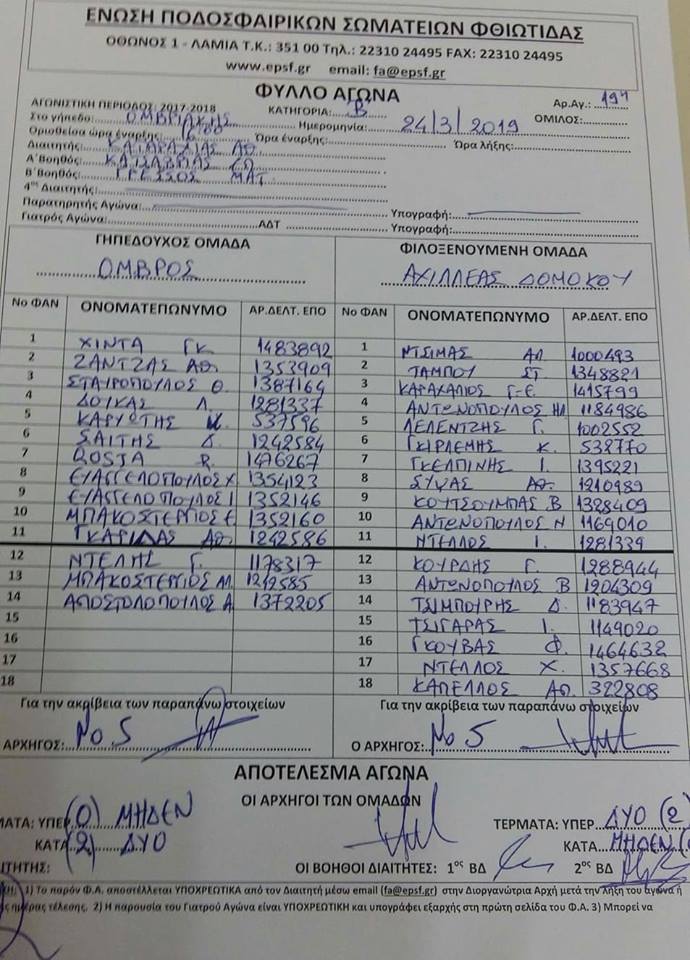 ΕΝΩΣΗ ΠΟΔΟΣΦΑΙΡΙΚΩΝ ΣΩΜΑΤΕΙΩΝ ΦΘΙΩΤΙΔΑΣ
ΟΘΩΝΟΣ 1 - ΛΑΜΙΑ Τ.Κ.: 351 00 Τηλ.: 22310 24495 FAX: 22310 24495
www.epsf.gr email: fa@epsf.gr
ΦΥΛΛΟ ΑΓΩΝΑ
ΑΓΩΝΙΣΤΙΚΗ ΠΕΡΙΟΔΟΣ: 2017-2018 ΚΑΤΗΓΟΡΙΑ: Β Αρ.Αγ.: 194
Στο γήπεδο: ΟΜΒΡΙΑΚΗΣ Ημερομηνία: 24/3/2019 ΟΜΙΛΟΣ:
Ορισθείσα ώρα έναρξης: 16:00 Ώρα έναρξης: Ώρα λήξης:
Διαιτητής: ΚΑΤΑΡΑΧΙΑΣ ΑΘ
Α΄Βοηθός:
Β΄Βοηθός: ΜΑΤ
4ος Διαιτητής:
Παρατηρητής Αγώνα: Υπογραφή:
Γιατρός Αγώνα: ΑΔΤ Υπογραφή:
ΓΗΠΕΔΟΥΧΟΣ ΟΜΑΔΑ ΦΙΛΟΞΕΝΟΥΜΕΝΗ ΟΜΑΔΑ
ΟΜΒΡΟΣ ΑΧΙΛΛΕΑΣ ΔΟΜΟΚΟΥ
Νο ΦΑΝ ΟΝΟΜΑΤΕΠΩΝΥΜΟ ΑΡ.ΔΕΛΤ. ΕΠΟ Νο ΦΑΝ ΟΝΟΜΑΤΕΠΩΝΥΜΟ ΑΡ.ΔΕΛΤ. ΕΠΟ
1 ΧΙΝΤΑ ΓΚ 1483892 1 ΝΤΣΙΜΑΣ ΑΠ 1000493
2 ΖΑΝΤΖΑΣ ΑΘ 1353909 2 ΤΑΜΠΟΥ ΣΤ 1348821
3 ΣΤΑΥΡΟΠΟΥΛΟΣ Θ 1387164 3 ΚΑΡΑΧΑΛΙΟΣ Γ-Ε 1415799
4 ΔΟΥΚΑΣ Λ. 1281337 4 ΑΝΤΩΝΟΠΟΥΛΟΣ ΗΛ 1184986
5 ΚΑΡΥΩΤΗΣ Κ. 537596 5 ΛΕΛΕΝΤΖΗΣ Γ. 1002552
6 ΣΑΙΤΗΣ Δ. 1242584 6 ΓΚΙΡΛΕΜΗΣ Κ. 538770
7 QOSJA R. 1476267 7 ΓΚΕΛΠΙΝΗΣ Ι. 1395221
8 ΕΥΑΓΓΕΛΟΠΟΥΛΟΣ Χ 1354123 8 ΣΥΨΑΣ ΑΘ. 1210989
9 ΕΥΑΓΓΕΛΟΠΟΥΛΟΣ Ι 1352146 9 ΚΟΥΤΣΟΥΜΠΑΣ Β 1328409
10 ΜΠΑΚΟΣΤΕΡΓΙΟΣ Ε 1352160 10 ΑΝΤΩΝΟΠΟΥΛΟΣ Ν 1169010
11 ΓΚΑΡΙΠΑΣ ΑΘ. 1242586 11 ΝΤΕΛΛΟΣ Ι. 1281339
12 ΝΤΕΛΗΣ Γ. 1178317 12 ΚΟΥΡΔΗΣ Γ. 1288944
13 ΜΠΑΚΟΣΤΕΡΓΙΟΣ ΑΠ 1242585 13 ΑΝΤΩΝΟΠΟΥΛΟΣ Β 1204309
14 ΑΠΟΣΤΟΛΟΠΟΥΛΟΣ Α 1372205 14 ΤΣΙΜΠΟΥΡΗΣ Δ. 1183947
15 15 ΤΣΙΓΑΡΑΣ Ι. 1149020
16 16 ΓΚΟΥΒΑΣ Φ. 1464632
17 17 ΝΤΕΛΛΟΣ Χ. 1357668
18 18 ΚΑΠΕΛΛΟΣ ΑΠ. 322808
Για την ακρίβεια των παραπάνω στοιχείων Για την ακρίβεια των παραπάνω στοιχείων
ΑΡΧΗΓΟΣ: Νο 5 Ο ΑΡΧΗΓΟΣ: Νο 5
ΑΠΟΤΕΛΕΣΜΑ ΑΓΩΝΑ
ΟΙ ΑΡΧΗΓΟΙ ΤΩΝ ΟΜΑΔΩΝ
ΜΑΤΑ: ΥΠΕΡ (0) ΜΗΔΕΝ ΤΕΡΜΑΤΑ: ΥΠΕΡ ΔΥΟ (2)
ΚΑΤΑ (2) ΔΥΟ ΚΑΤΑ ΜΗΔΕΝ
ΑΙΤΗΤΗΣ: ΟΙ ΒΟΗΘΟΙ ΔΙΑΙΤΗΤΕΣ: 1ος ΒΔ 2ος ΒΔ
1) Το παρόν Φ.Α. αποστέλλεται ΥΠΟΧΡΕΩΤΙΚΑ από τον Διαιτητή μέσω email (fa@epsf.gr) στην Διοργανώτρια Αρχή μετά την λήξη του αγώνα ή
ημέρας τέλεσης. 2) Η παρουσία του Γιατρού Αγώνα είναι ΥΠΟΧΡΕΩΤΙΚΗ και υπογράφει εξαρχής στη πρώτη σελίδα του Φ.Α. 3) Μπορεί να